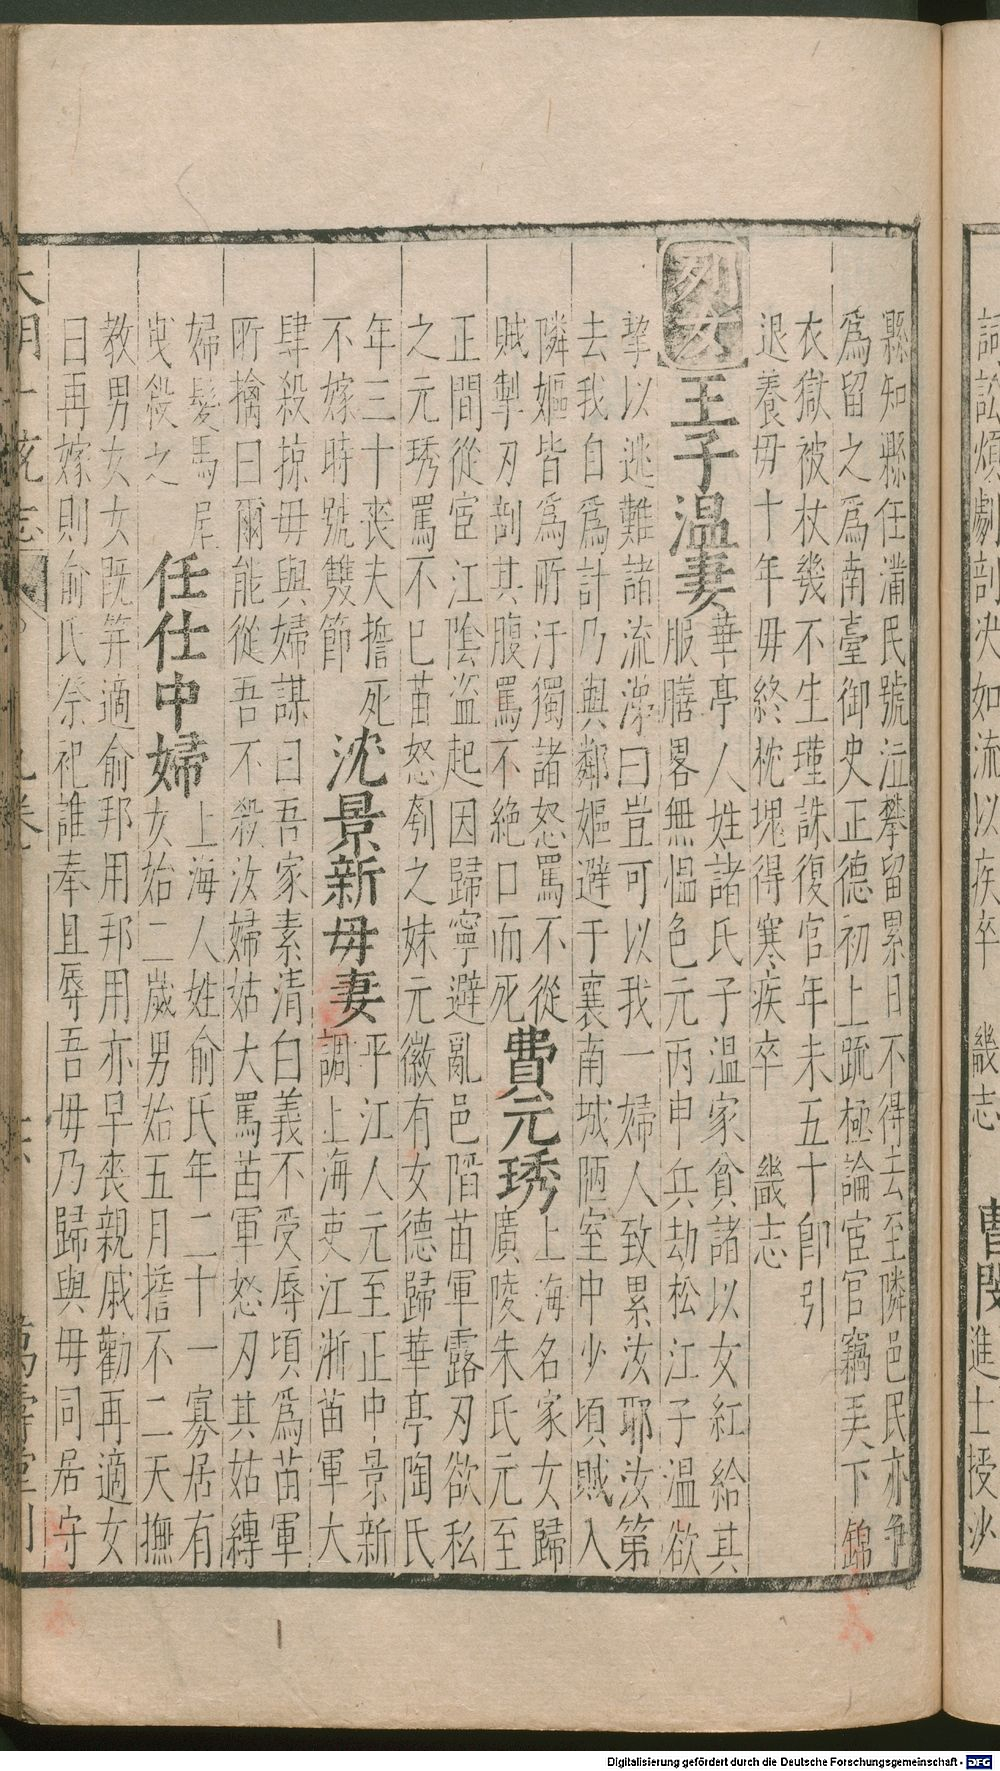 縣知縣任滿民號泣攀留累日不得去至隣邑民亦爭
爲留之爲南臺御史正德初上疏極論宦官竊弄下錦
衣獄被杖幾不生瑾誅復官年未五十卽引
退養毋十年毋終枕塊得寒疾卒 畿志
列女 王子温妻 華亭人姓諸氏子温家貧諸以女紅給其
服膳畧無慍色元丙申兵劫松江子温欲
挈以逃難諸流涕曰豈可以我一婦人致累汝耶汝第
去我自爲計乃與鄰嫗避于襄南城陋室中少頃賊入
隣嫗皆爲所汙獨諸怒罵不從
賊掣刃剖其腹罵不絶口而死
費元琇 上海名家女歸
廣陵朱氏元至
正間從宦江陰盗起因歸寧避亂邑䧟苗軍露刃欲私
之元琇罵不已苗怒刳之妹元徽有女德歸華亭陶氏
年三十喪夫擔死
不嫁時號雙節
沈景新毋妻 平江人元至正中景新
調上海吏江浙苗軍大
肆殺掠毋與婦謀曰吾家素清白義不受辱頃爲苗軍
所擒曰爾能從吾不殺汝婦姑大罵苦軍怒刃其姑縛
婦髪馬尾
曳殺之
任仕中婦 上海人姓俞氏年二十一寡居有
女始二歲男始五月擔不二天撫
教男女女既笄適俞邦用邦用亦早喪親戚勸再適女
曰再嫁則俞氏祭祀誰奉且辱吾毋乃歸與毋同居守
大明一統志 九卷 萬壽堂刊
詞訟煩劇剖決如流以疾卒 畿志 曹閔 進士授沙
Digitalisierung gefördert durch die Deutsche Forschungsgemeinschaft - DFG